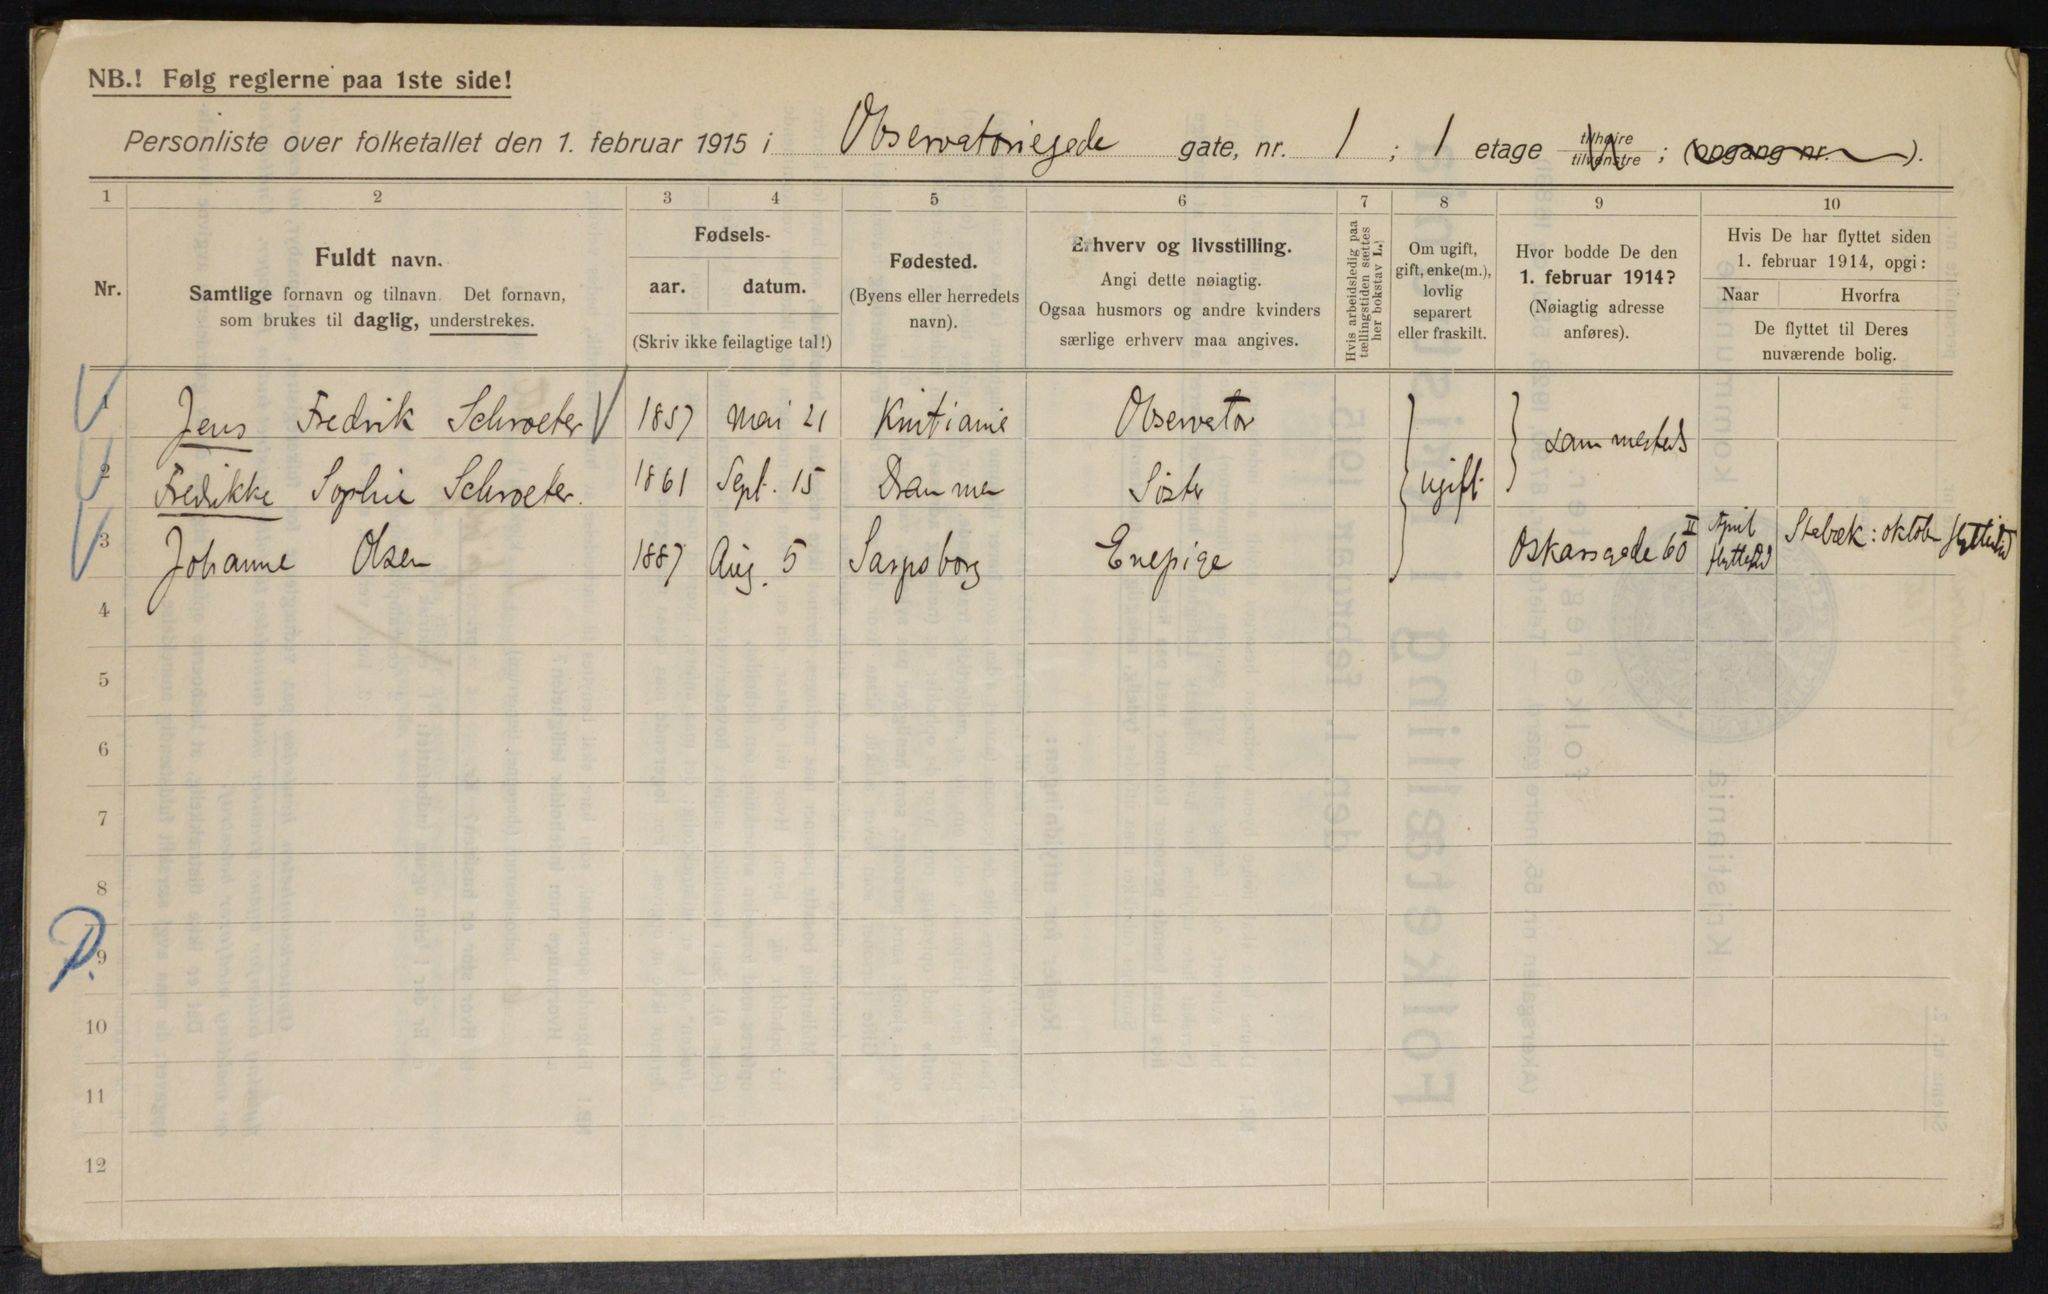 NB.! Følg reglerne paa 1ste side!
Personliste over folketallet den 1. februar 1915 i Observatoriegade gate, nr. 1 ; 1 etage tilhøire tilvenstre ; (opgang nr. ).
1 2 3 4 5 6 7 8 9 10
Nr.
Fuldt navn.
Samtlige fornavn og tilnavn. Det fornavn,
som brukes til daglig, understrekes.
Fødsels-
aar. datum.
(Skriv ikke feilagtige tal!)
Fødested.
(Byens eller herredets
navn).
Erhverv og livsstilling.
Angi dette nøiagtig.
Ogsaa husmors og andre kvinders
særlige erhverv maa angives.
Hvis arbeidsledig paa
tællingstiden sættes
her bokstav L.
Om ugift,
gift, enke(m.),
lovlig
separert
eller fraskilt.
Hvor bodde De den
1. februar 1914?
(Nøiagtig adresse
anføres).
Hvis De har flyttet siden
1. februar 1914, opgi:
Naar Hvorfra
De flyttet til Deres
nuværende bolig.
1 Jens Fredrik Schroeter 1857 Mai 21 Kristiania Observator
sammesteds
2 Fredrikke Sophie Schroeter. 1861 Sept. 15 Drammen Söster ugift
3 Johanne Olsen 1887 Aug. 5 Sarpsborg Enepige Oskarsgade 60 II April flyttetid Stabæk: oktober flyttetid
4
5
6
7
8
P.
9
10
11
12